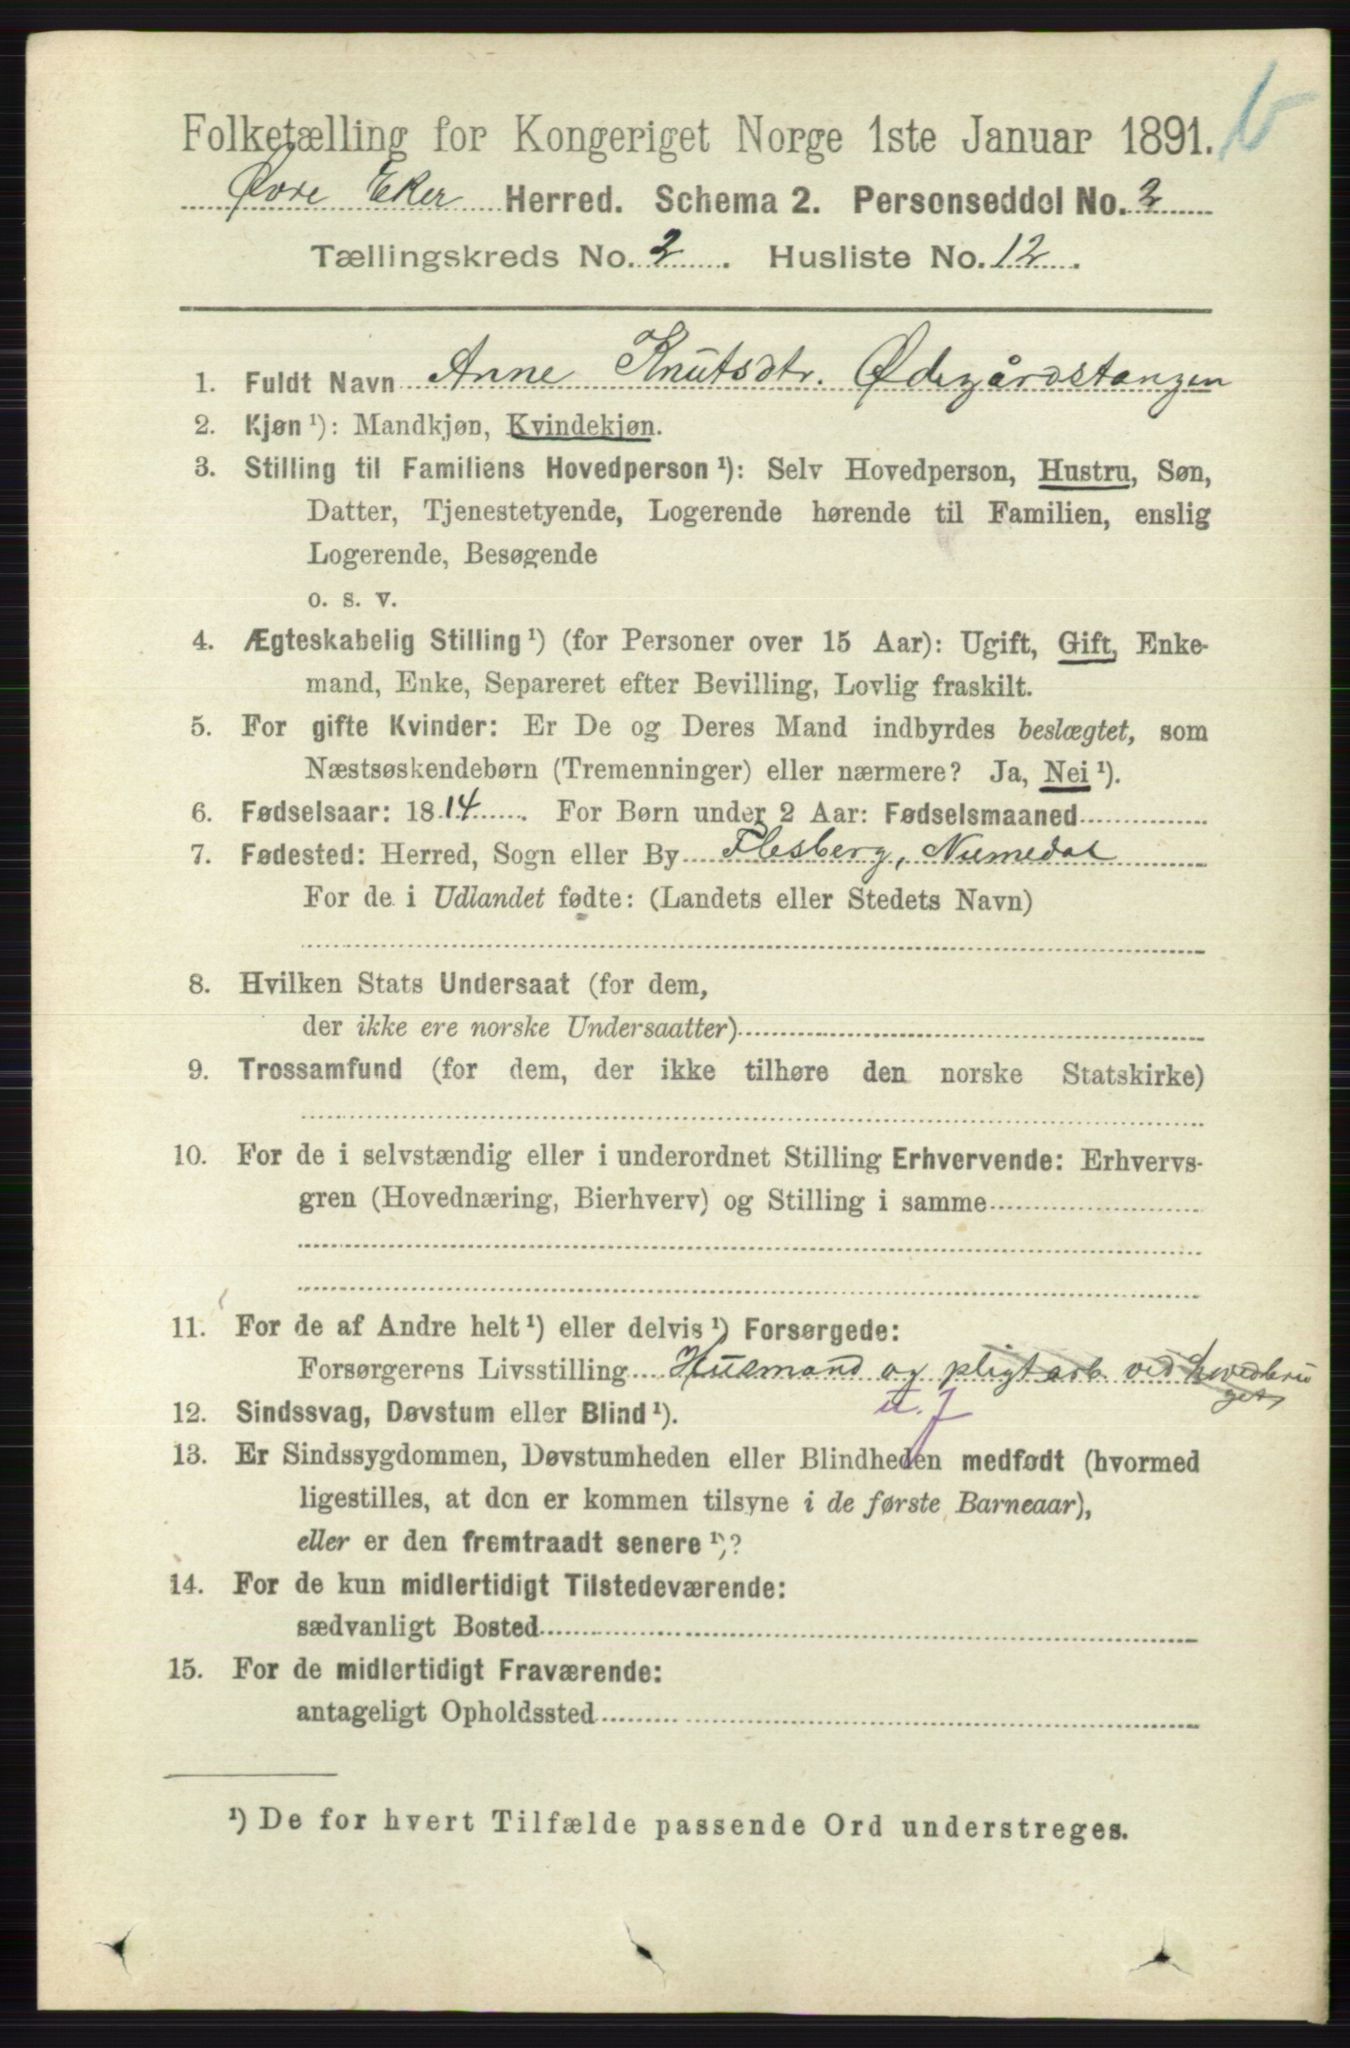 Folketælling for Kongeriget Norge 1ste Januar 1891.
Øvre Eker Herred. Schema 2. Personseddel No. 2
Tællingskreds No. 2. Husliste No. 12.
1. Fuldt Navn Anne Knutsdtr. Ødegårdstangen
2. Kjøn ¹): Mandkjøn, Kvindekjøn.
3. Stilling til Familiens Hovedperson ¹): Selv Hovedperson, Hustru, Søn,
Datter, Tjenestetyende, Logerende hørende til Familien, enslig
Logerende, Besøgende
o. s. v.
4. Ægteskabelig Stilling ¹) (for Personer over 15 Aar): Ugift, Gift, Enke-
mand, Enke, Separeret efter Bevilling, Lovlig fraskilt.
5. For gifte Kvinder: Er De og Deres Mand indbyrdes beslægtet, som
Næstsøskendebørn (Tremenninger) eller nærmere? Ja, Nei ¹).
6. Fødselsaar: 1814. For Børn under 2 Aar: Fødselsmaaned
7. Fødested: Herred, Sogn eller By Flesberg, Numedal
For de i Udlandet fødte: (Landets eller Stedets Navn)
8. Hvilken Stats Undersaat (for dem,
der ikke ere norske Undersaatter)
9. Trossamfund (for dem, der ikke tilhøre den norske Statskirke)
10. For de i selvstændig eller i underordnet Stilling Erhvervende: Erhvervs-
gren (Hovednæring, Bierhverv) og Stilling i samme
11. For de af Andre helt ¹) eller delvis ¹) Forsørgede:
Forsørgerens Livsstilling Husmand og pligtarb. ved hovedbru
get
12. Sindssvag, Døvstum eller Blind ¹).
13. Er Sindssygdommen, Døvstumheden eller Blindheden medfødt (hvormed
ligestilles, at den er kommen tilsyne i de første Barneaar),
eller er den fremtraadt senere ¹)?
14. For de kun midlertidigt Tilstedeværende:
sædvanligt Bosted
15. For de midlertidigt Fraværende:
antageligt Opholdssted
¹) De for hvert Tilfælde passende Ord understreges.